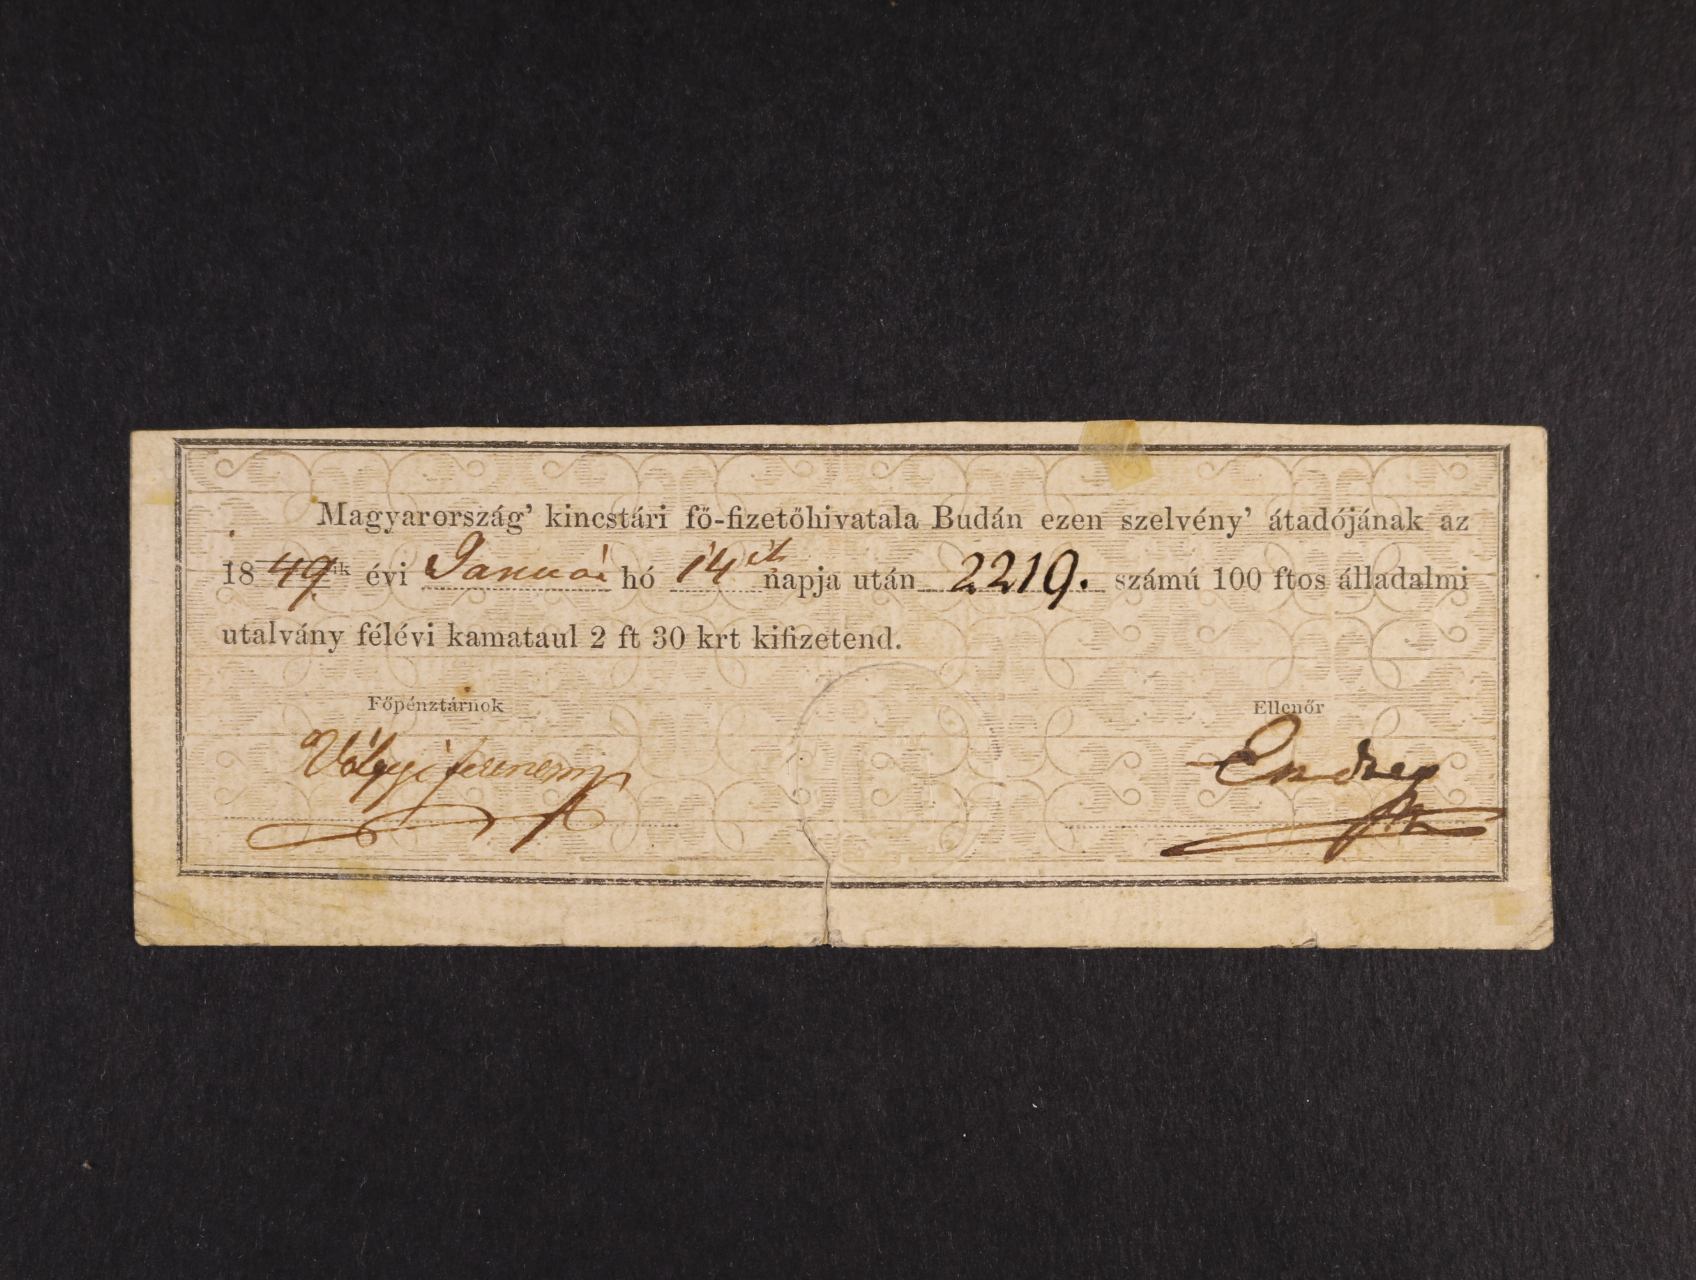 Magyarország’ kincstári fő-fizetőhivatala Budán ezen szelvény’ átadójának az
1849.ik évi Januái hó 14ik napja után 2219. számú 100 ftos álladalmi
utalvány félévi kamataul 2 ft 30 krt kifizetend.
Főpénztárnok Ellenőr
Völgyi